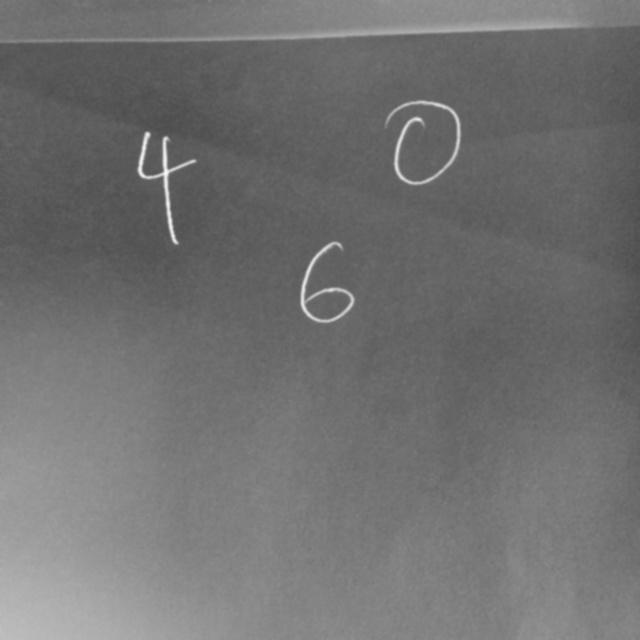 4 0
6